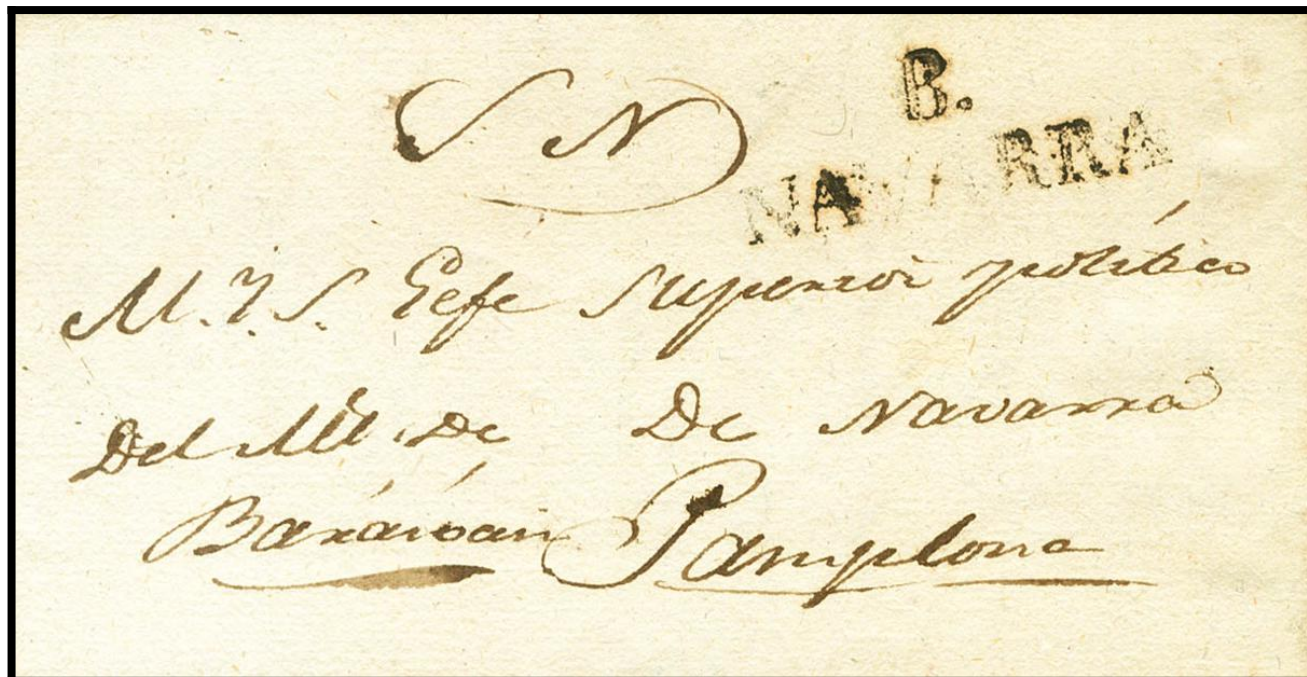 S N
B.
NAVARRA
M. Y. S. Gefe Superior político
Del Al.e De De Navarra
Barásoain Pamplona